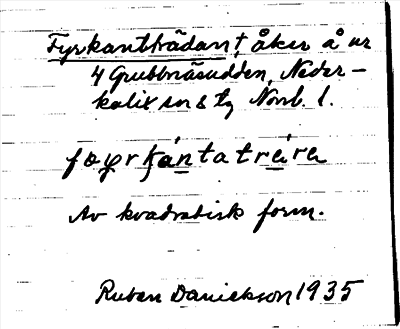 Fyrkantträdan †, åker å nr
4 Grubbnäsudden, Neder-
kalix sn & tg Norrb. l.
Av kvadratisk form.
Ruben Danielsson 1935